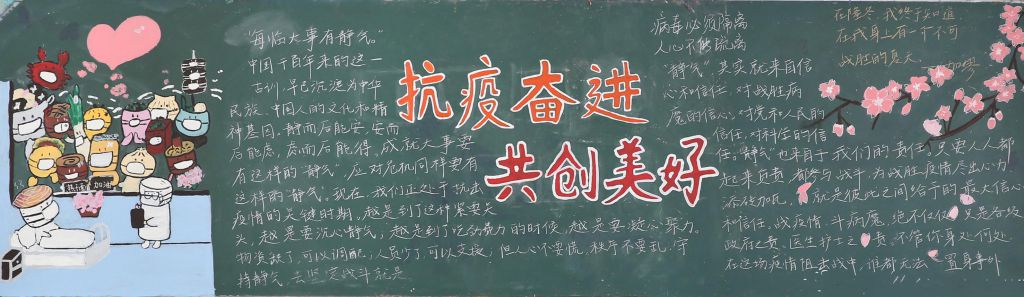 "每临大事有静气。"
中国千百年来的这一
古训,早已沉淀为中华
民族、中国人的文化和精
神基因。静而后能安,安而
后能虑,虑而后能得。成就大事要
有这样的"静气",应对危机同样要有
这样的"静气"。现在,我们正处于抗击
疫情的关键时期。越是到了这种紧要关
头,越是要沉心静气,越是到了吃劲费力的时候,越是要凝心聚力。
物资短了,可以调配,人员少了,可以支援,但人心不要慌,秩序不要乱,守
持静气,去坚定战斗就是
热干面 加油
抗疫奋进
共创美好
病毒必须隔离
人心不能疏离
"静气",其实就来自信
心和信任,对战胜病
魔的信心,对党和人民的
信任,对科学的信
任。"静气"也来自于我们的责任,只要人人都
起来负责,都参与战斗,为战胜疫情尽出心力,
添砖加瓦,就是彼此之间给予的最大信心
和信任。战疫情,斗病魔,绝不仅仅只是各级
政府之责,医生护士之责。不管你身处何处
在这场疫情阻击战中,谁都无法置身事外
在隆冬,我终于知道
在我身上有一个不可
战胜的夏天。
——加缪